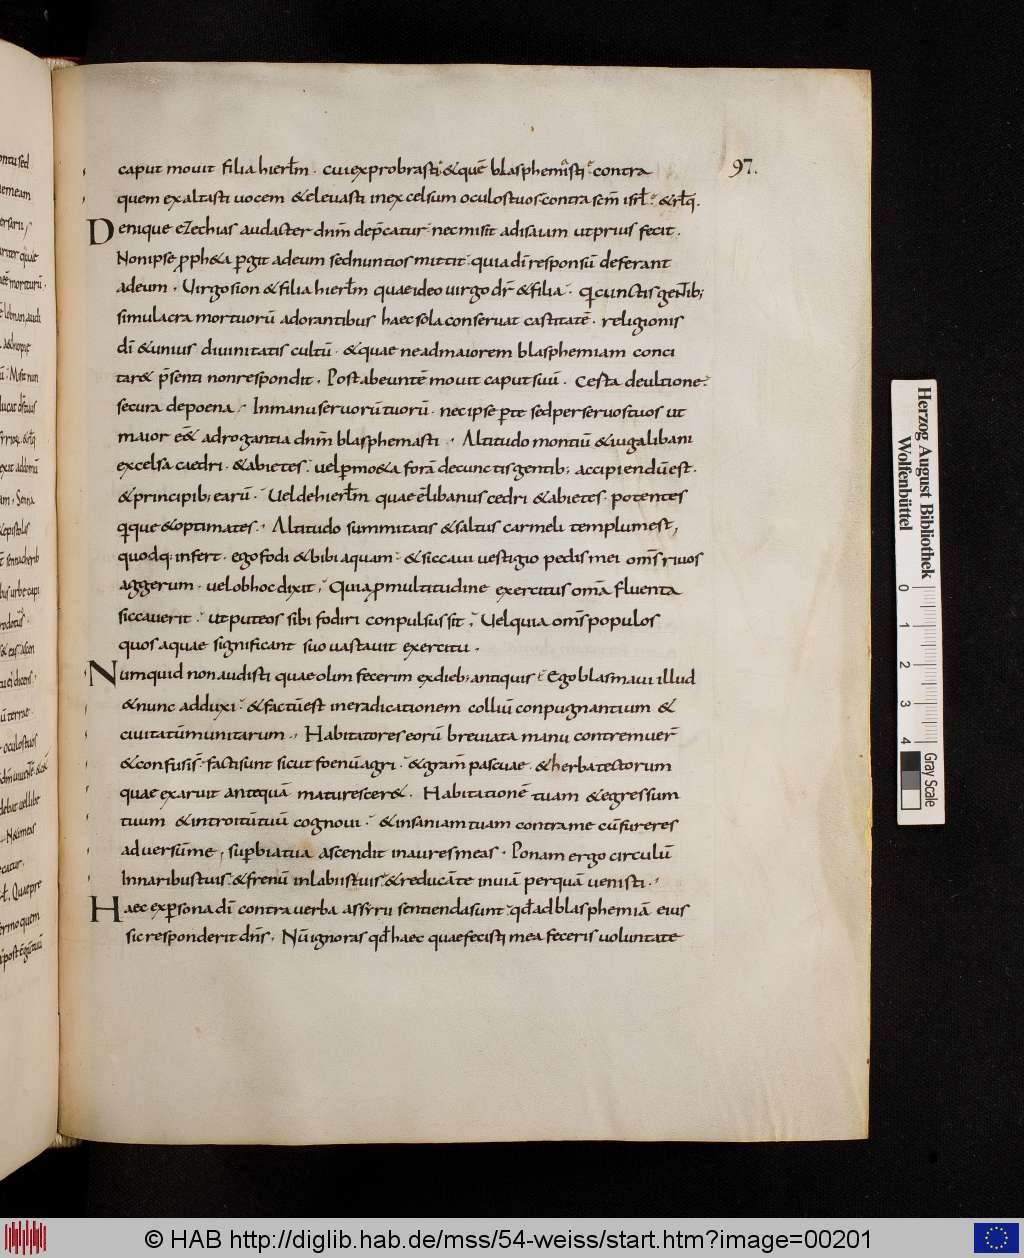 caput mouit filia hierłm. cui exprobrasti & quē blasphemasti contra
97.
quem exaltasti uocem & eleuasti in excelsum oculos tuos contra scm̄ isrł. & rłq.
Denique ezechias audacter dnm̄ dep̄catur nec misit ad isaiam ut prius fecit.
Non ipse pph&a pgit ad eum sed nuntios mittit quia dī responsū deferant
ad eum. Uirgo sion & filia hierłm quae ideo uirgo dr̄ & filia. q cunctis gentib;
simulacra mortuorū adorantibus haec sola conseruat castitatē. religionis
dī & unius diuinitatis cultū. & quae ne ad maiorem blasphemiam conci
tar& p̄senti non respondit. Post abeuntē mouit caput suū. Certa de ultione
secura de poena. In manu seruorū tuorū. nec ipse per te sed per seruos tuos ut
maior ēē adrogantia dnm̄ blasphemasti. Altitudo montiū & iuga libani
excelsa caedri. & abietes. uel p mo&a forā de cunctis gentib; accipiendū est.
& principib; earū. Uel de hierłm quae ē libanus cedri & abietes. potentes
qque & optimates. Altitudo summitatis & saltus carmeli templum est,
quod q; infert. ego fodi & bibi aquam & siccaui uestigio pedis mei oms̄ riuos
aggerum. uel ob hoc dixit, Quia p multitudine exercitus omā fluenta
siccauerit. ut puteos sibi fodiri conpulsus sit, Uel quia oms̄ populos
quos aquae significant suo uastauit exercitu.
Numquid non audisti quae olim fecerim ex dieb; antiquis. Ego plasmaui illud
& nunc adduxi. & factū est in eradicationem colliū conpugnantium &
ciuitatū munitarum. Habitatores eorū breuiata manu contremuer̄
& confusis̄ facti sunt sicut foenū agri. & gram̄ pascuae & herba tectorum
quae exaruit antequā maturescer&. Habitationē tuam & egressum
tuum & introitū tuū cognoui. & insaniam tuam contra me cū fureres
aduersū me, supbia tua ascendit in aures meas. Ponam ergo circulū
In naribus tuis. & frenū in labiis tuis & reducā te in uiā per quā uenisti.
Haec ex psona dī contra uerba assyrii sentienda sunt. qđ ad blasphemiā eius
sic responderit dns̄. Nū ignoras qđ haec quae fecisti mea feceris uoluntate
Herzog August Bibliothek
Wolfenbüttel
0 1 2 3 4
Gray Scale
© HAB http://diglib.hab.de/mss/54-weiss/start.htm?image=00201